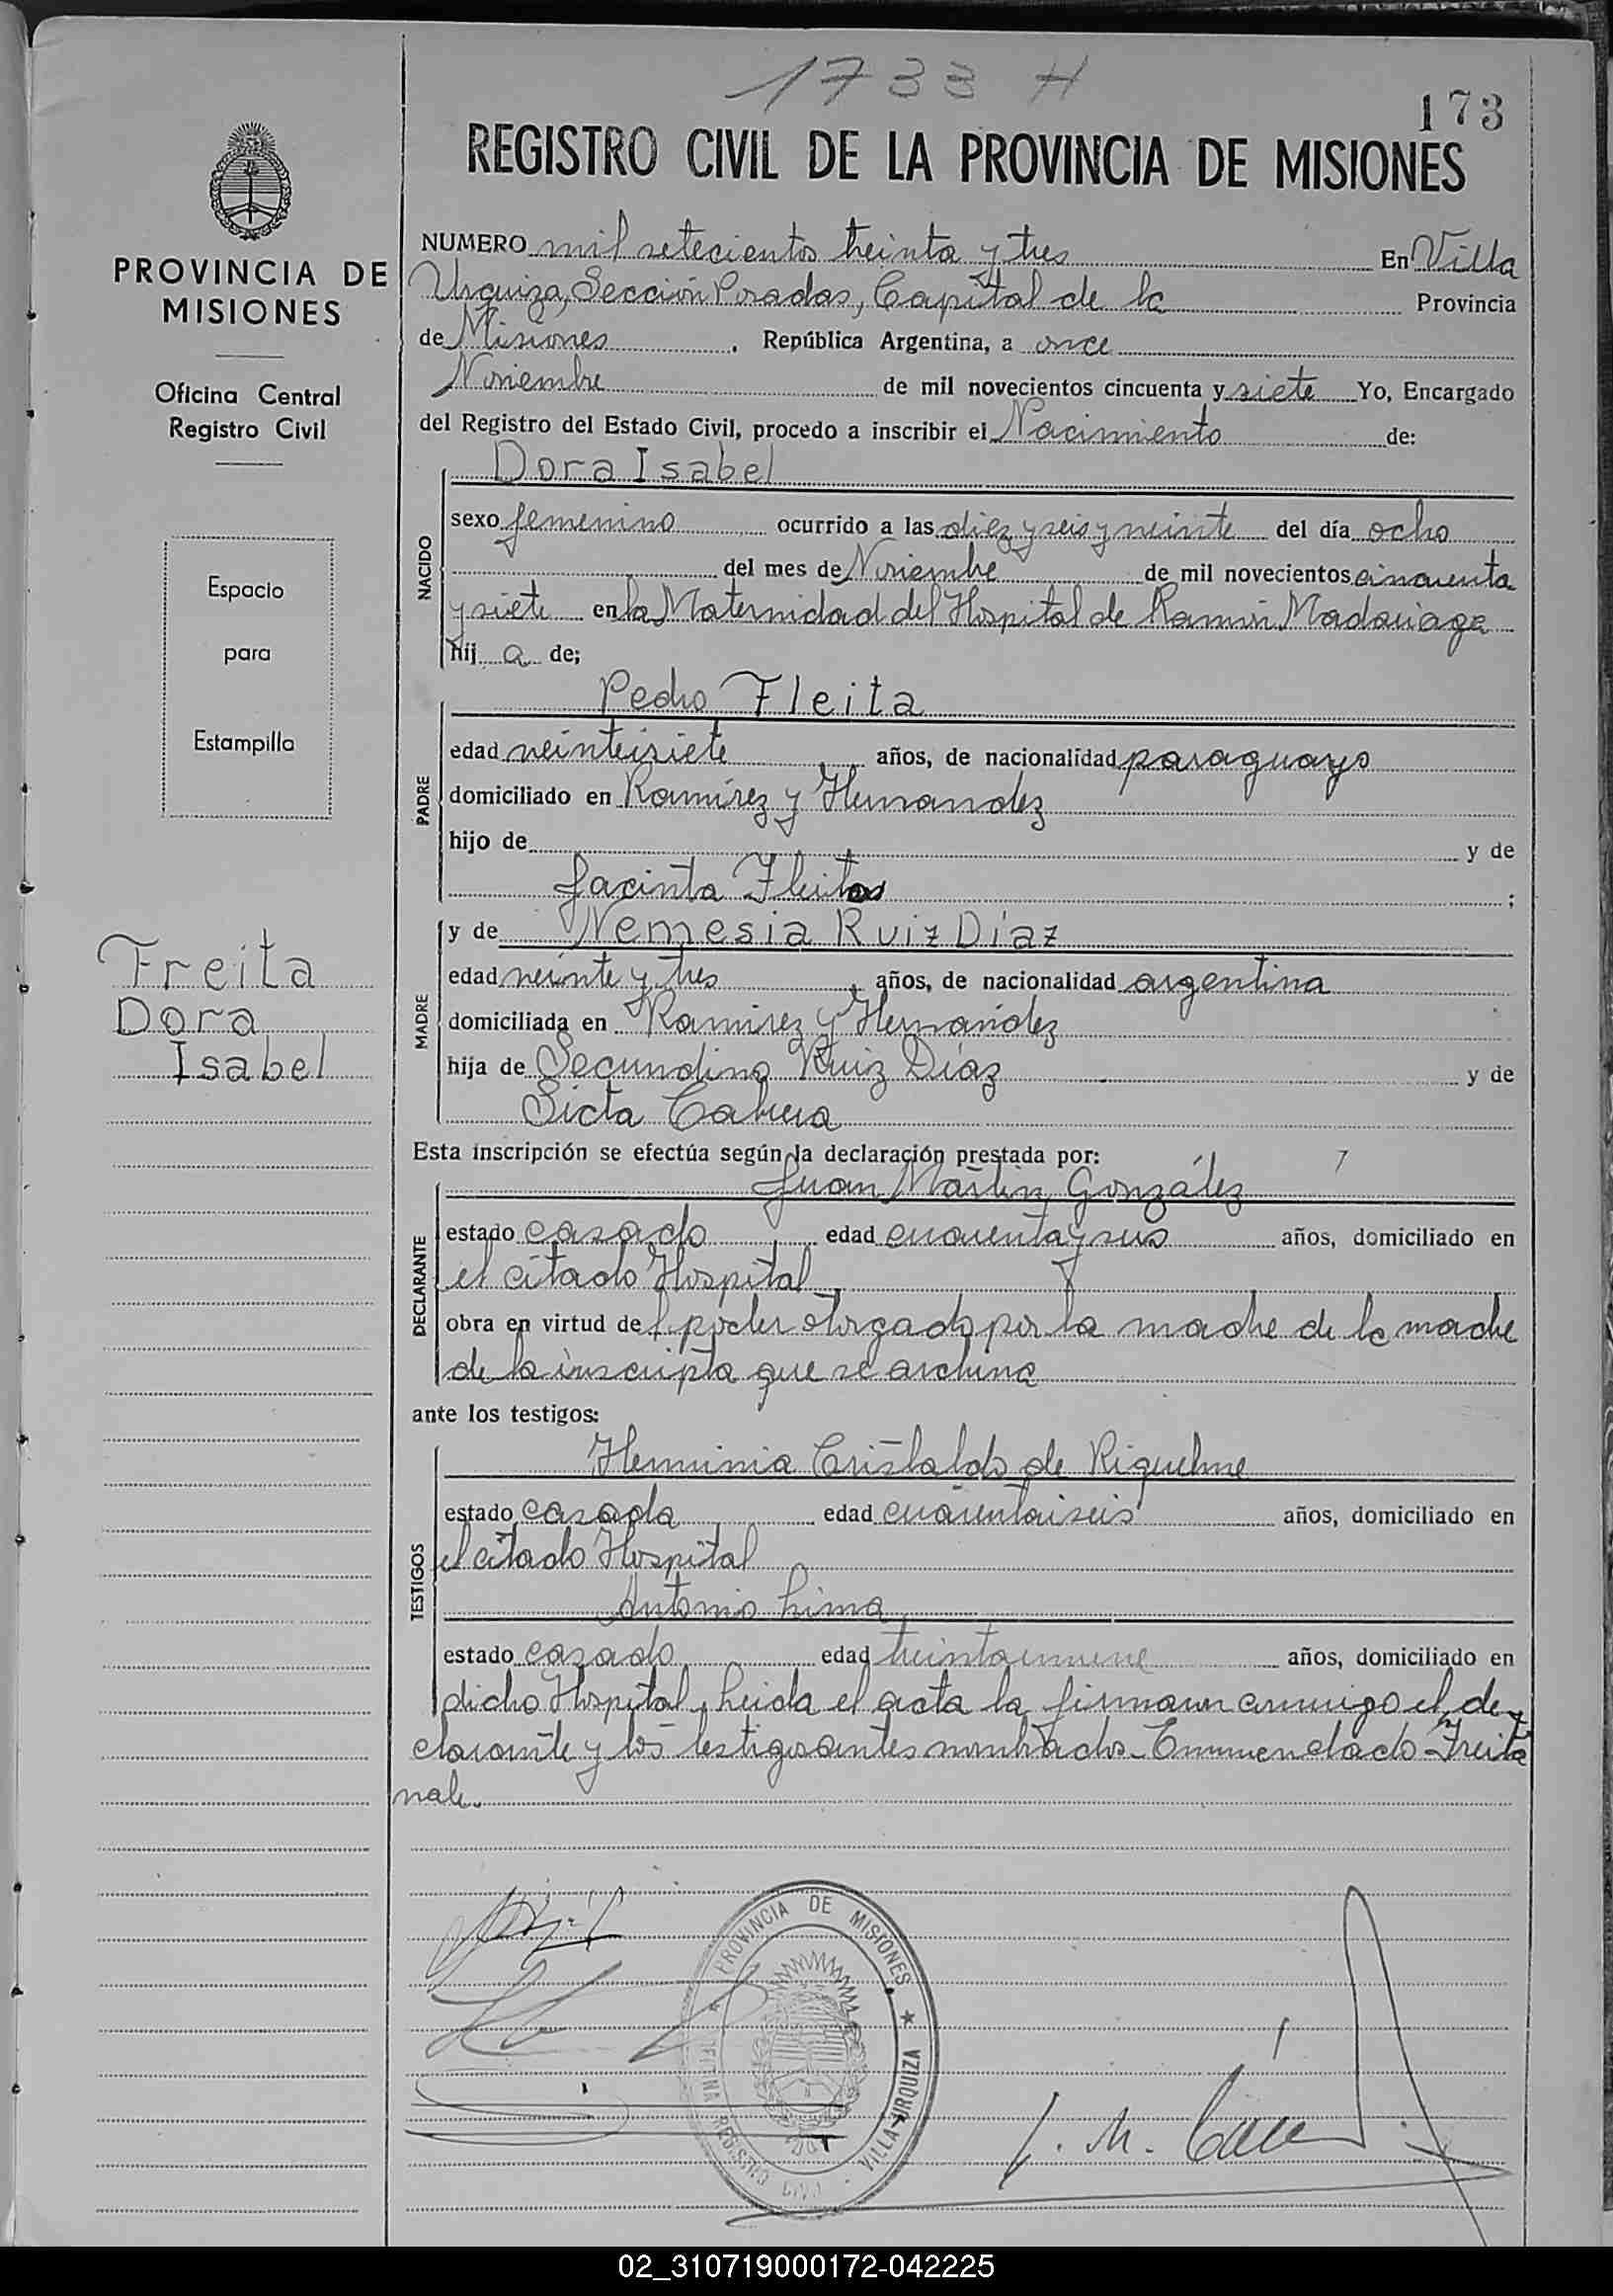 1733 H
173
REGISTRO CIVIL DE LA PROVINCIA DE MISIONES
PROVINCIA DE
MISIONES
Oficina Central
Registro Civil
Espacio
para
Estampilla
Freita
Dora
Isabel
NUMERO mil setecientos treinta y tres En Villa
Urquiza, Sección Posadas, Capital de la Provincia
de Misiones, República Argentina, a once
Noviembre de mil novecientos cincuenta y siete Yo, Encargado
del Registro del Estado Civil, procedo a inscribir el Nacimiento de:
NACIDO
Dora Isabel
sexo femenino ocurrido a las diez y seis y veinte del día ocho
del mes de Noviembre de mil novecientos cincuenta
y siete en la Maternidad del Hospital de Ramón Madariaga
hij a de;
PADRE
Pedro Fleita
edad veintisiete años, de nacionalidad paraguayo
domiciliado en Ramírez y Hernandez
hijo de y de
Jacinta Fleitas ;
MADRE
y de Nemesia Ruiz Díaz
edad veinte y tres años, de nacionalidad argentina
domiciliada en Ramirez y Hernández
hija de Secundino Ruiz Díaz y de
Sicta Cabrera
Esta inscripción se efectúa según la declaración prestada por:
DECLARANTE
Juan Martín González
estado casado edad cuarenta y seis años, domiciliado en
el citado Hospital
obra en virtud del poder otorgado por la madre de la madre
de la inscripta que se archiva
ante los testigos:
TESTIGOS
Herminia Cristaldo de Riquelme
estado casada edad cuarentaiseis años, domiciliado en
el citado Hospital
Antonio Lima
estado casado edad treintainueve años, domiciliado en
dicho Hospital, Leida el acta la firman conmigo el de
clarante y los testigos antes nombrados - Enmendado - Freita
vale.
PROVINCIA DE MISIONES
OFICINA REGISTRO CIVIL - VILLA URQUIZA
02_310719000172-042225